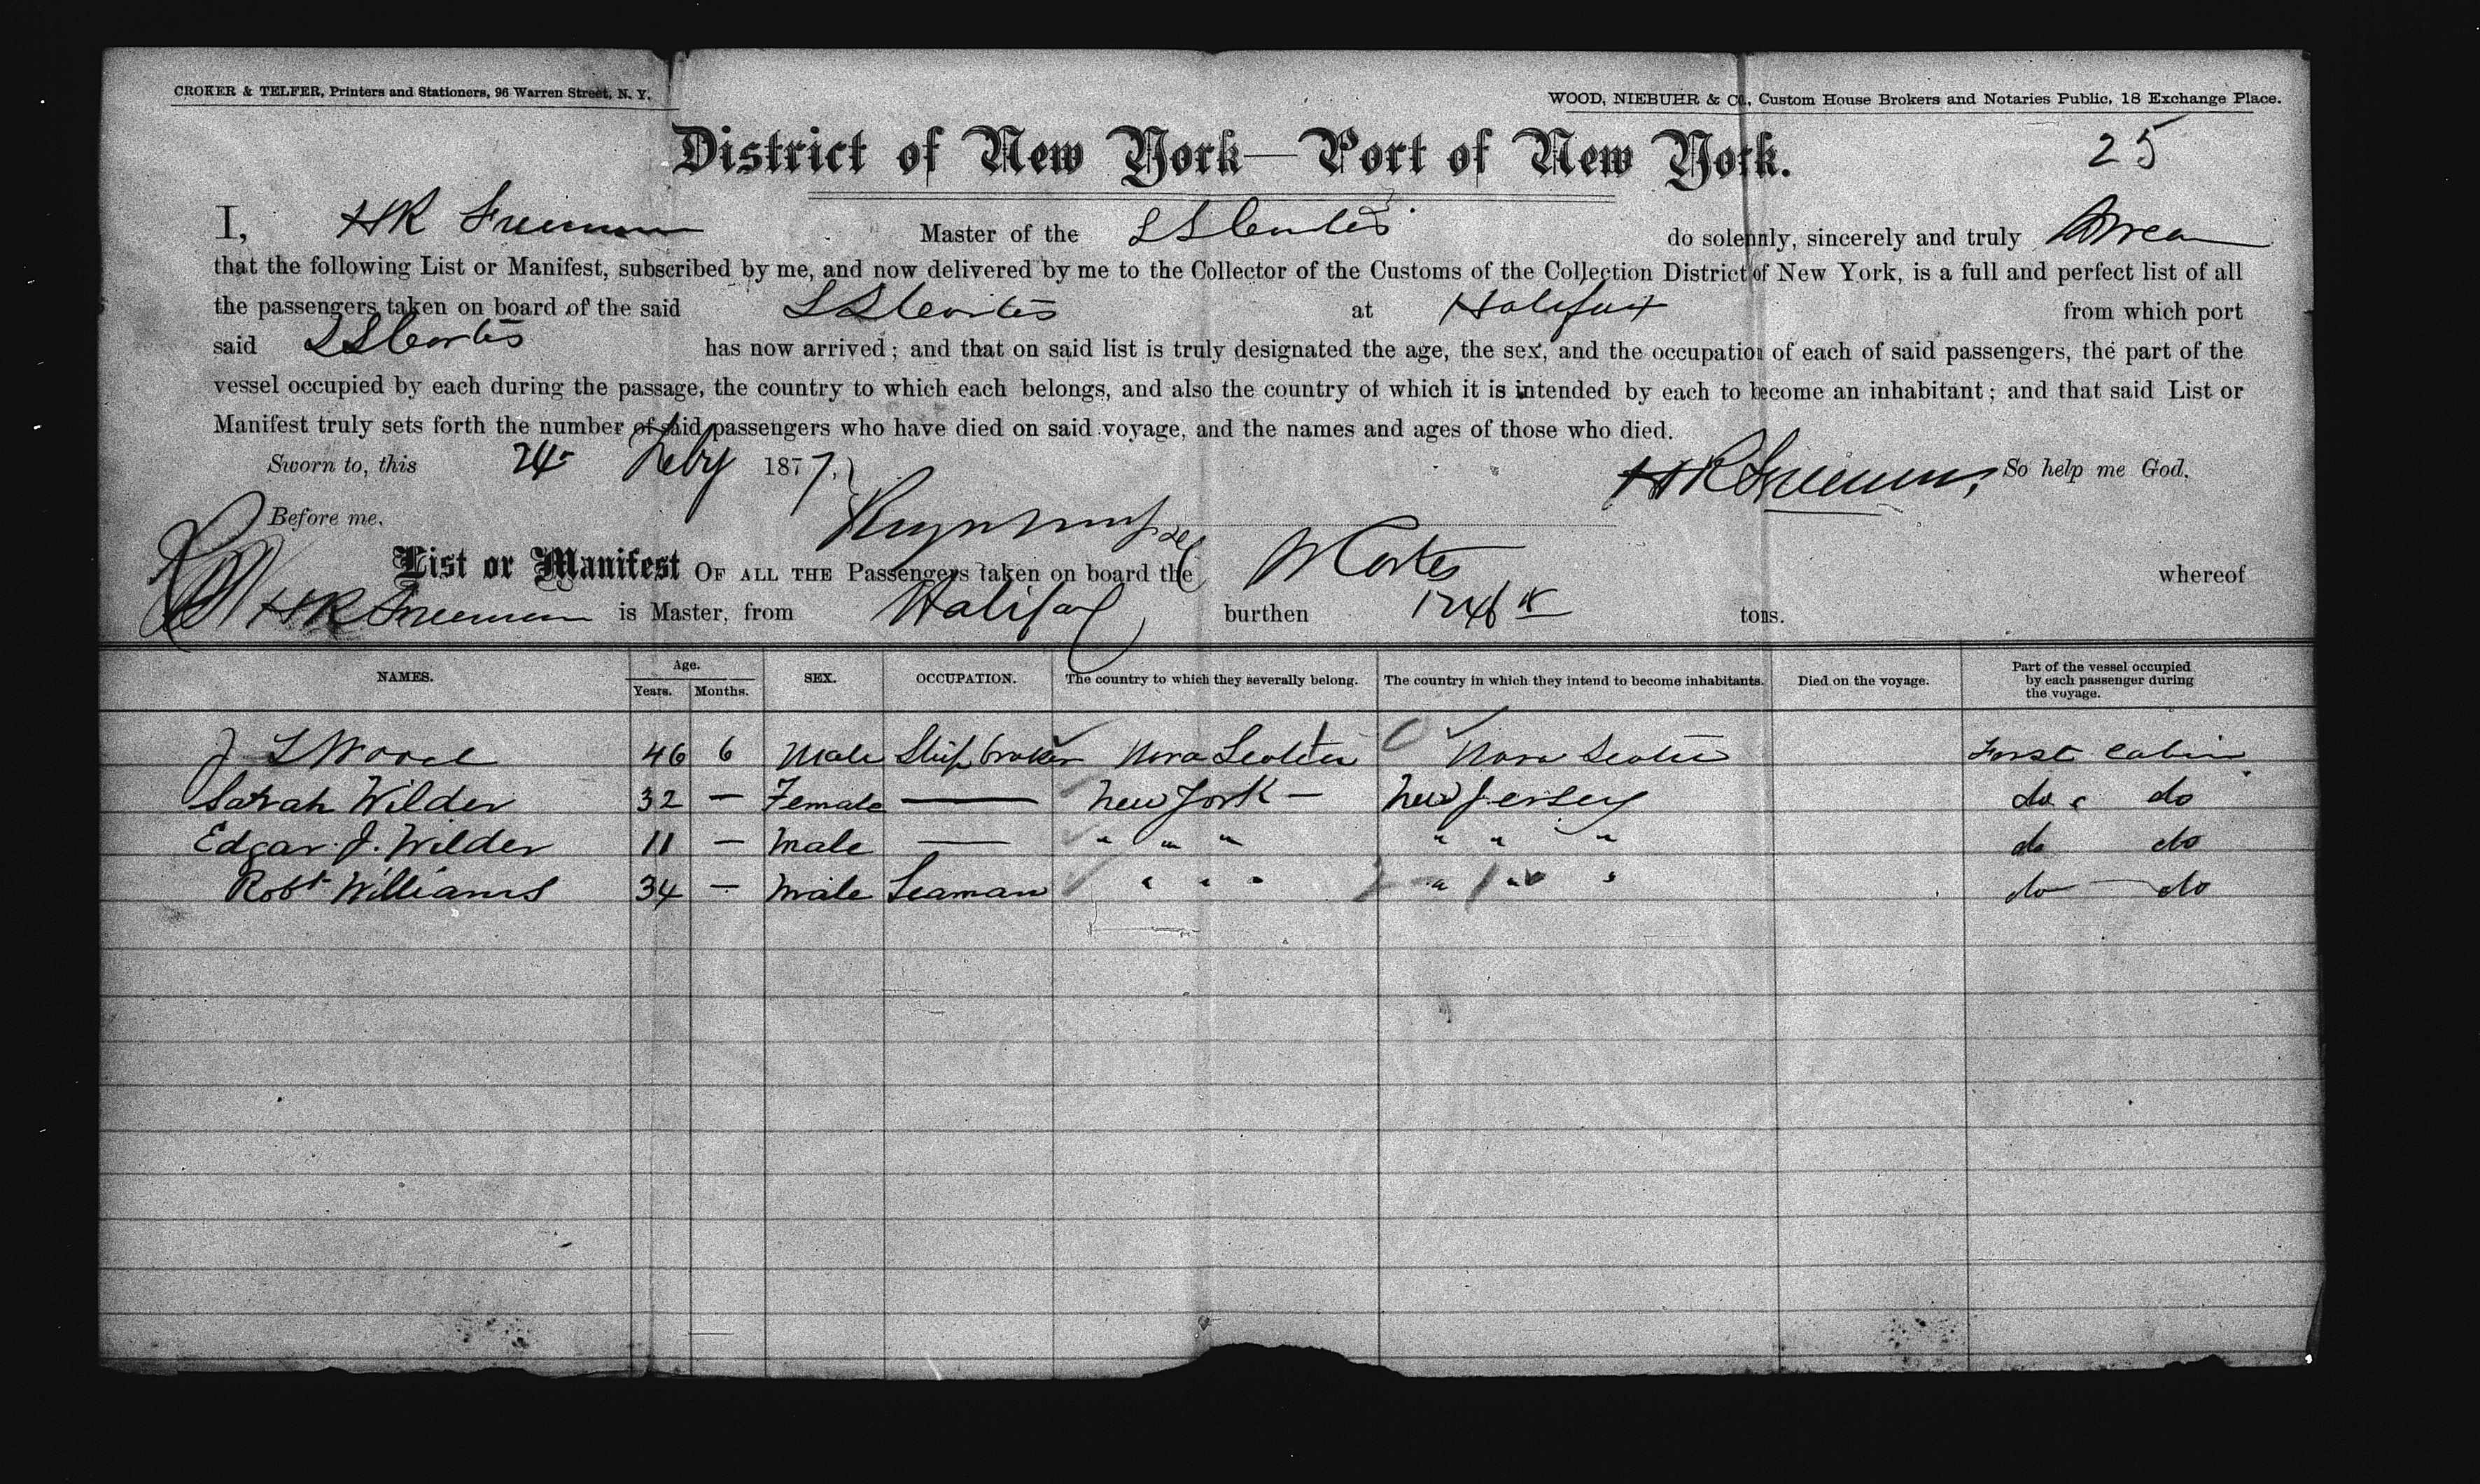 CROKER & TELFER, Printers and Stationers, 96 Warren Street, N. Y.
WOOD, NIEBUHR & Co., Custom House Brokers and Notaries Public, 18 Exchange Place.
District of New York—Port of New York.
25
I, HR Freeman Master of the SS Cortes do solemnly, sincerely and truly Swear
that the following List or Manifest, subscribed by me, and now delivered by me to the Collector of the Customs of the Collection District of New York, is a full and perfect list of all
the passengers taken on board of the said SS Cortes at Halifax from which port
said SS Cortes has now arrived; and that on said list is truly designated the age, the sex, and the occupation of each of said passengers, the part of the
vessel occupied by each during the passage, the country to which each belongs, and also the country of which it is intended by each to become an inhabitant; and that said List or
Manifest truly sets forth the number of said passengers who have died on said voyage, and the names and ages of those who died.
Sworn to, this 24 Feby 1877. HR Freeman, So help me God.
Before me.
List or Manifest OF ALL THE Passengers taken on board the Cortes whereof
HR Freeman is Master, from Halifax burthen tons.
NAMES. Age. Years. Months. SEX. OCCUPATION. The country to which they severally belong. The country in which they intend to become inhabitants. Died on the voyage. Part of the vessel occupied by each passenger during the voyage.
J S Wood 46 6 Male Ship broker Nova Scotia Nova Scotia First cabin
Sarah Wilder 32 — Female — New York — New Jersey do do
Edgar J. Wilder 11 — Male — " " " " " " do do
Robt Williams 34 — Male Seaman " " " " " " do — do